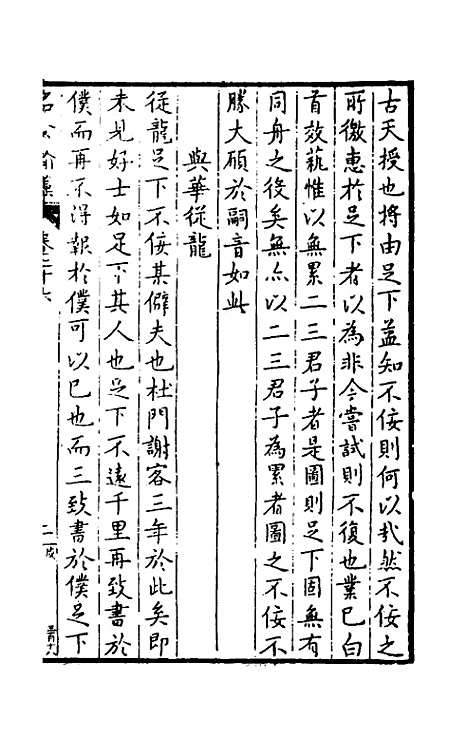 古天授也將由足下益知不佞則何以哉然不佞之
所徼惠於足下者以為非今嘗試則不復也業已白
首效蓺惟以無累二三君子者是圖則足下固無有
同舟之役矣無亦以二三君子為累者圖之不佞不
勝大碩於嗣音如此
與華從龍
從龍足下不佞某僻夫也杜門謝客三年於此矣即
未見好士如足下其人也足下不遠千里再致書於
僕而再不得報於僕可以已也而三致書於僕足下
卷二十六